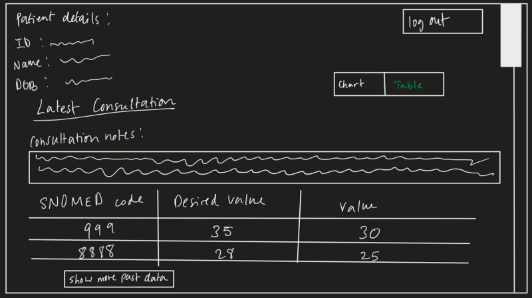 Patient details :
log out
ID :
Name :
DOB :
Chart Table
Latest Consultation
Consultation notes :
SNOMED code Desired value Value
999 35 30
8888 28 25
show more past data